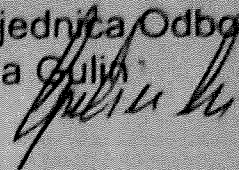 jednica Odbo
a Gulin